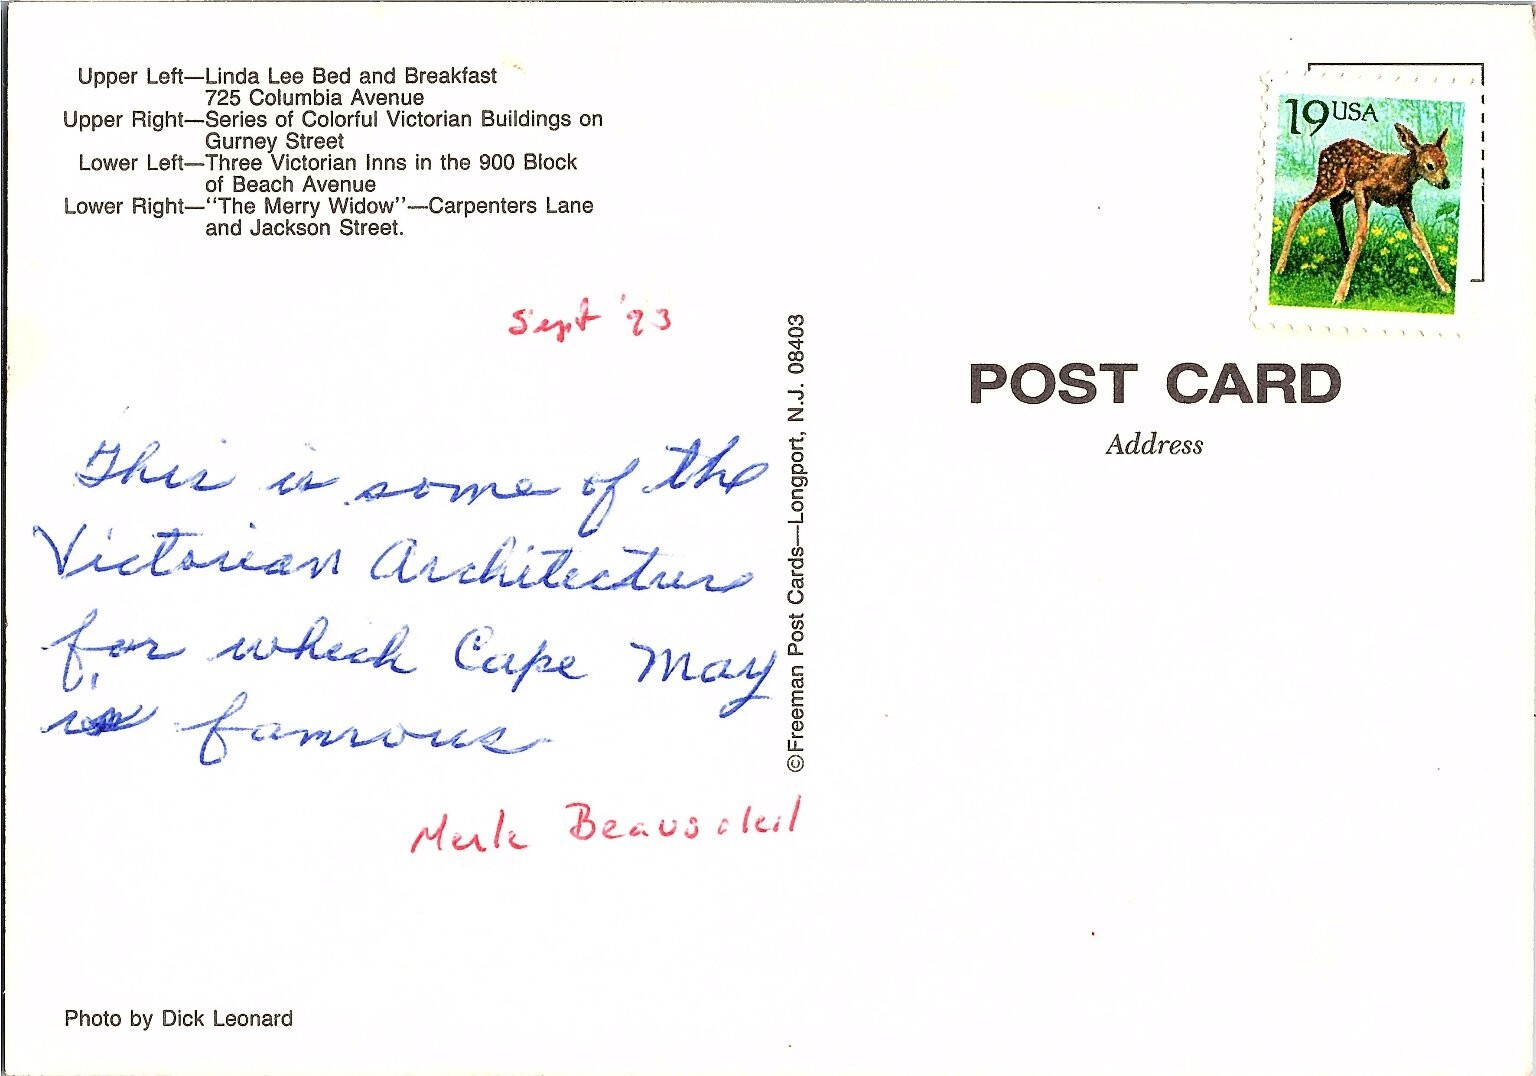 Upper Left—Linda Lee Bed and Breakfast
725 Columbia Avenue
Upper Right—Series of Colorful Victorian Buildings on
Gurney Street
Lower Left—Three Victorian Inns in the 900 Block
of Beach Avenue
Lower Right—“The Merry Widow”—Carpenters Lane
and Jackson Street.
Sept '93
This is some of the
Victorian Architecture
for which Cape May
is famous
Merle Beausoleil
Photo by Dick Leonard
©Freeman Post Cards—Longport, N.J. 08403
19 USA
POST CARD
Address